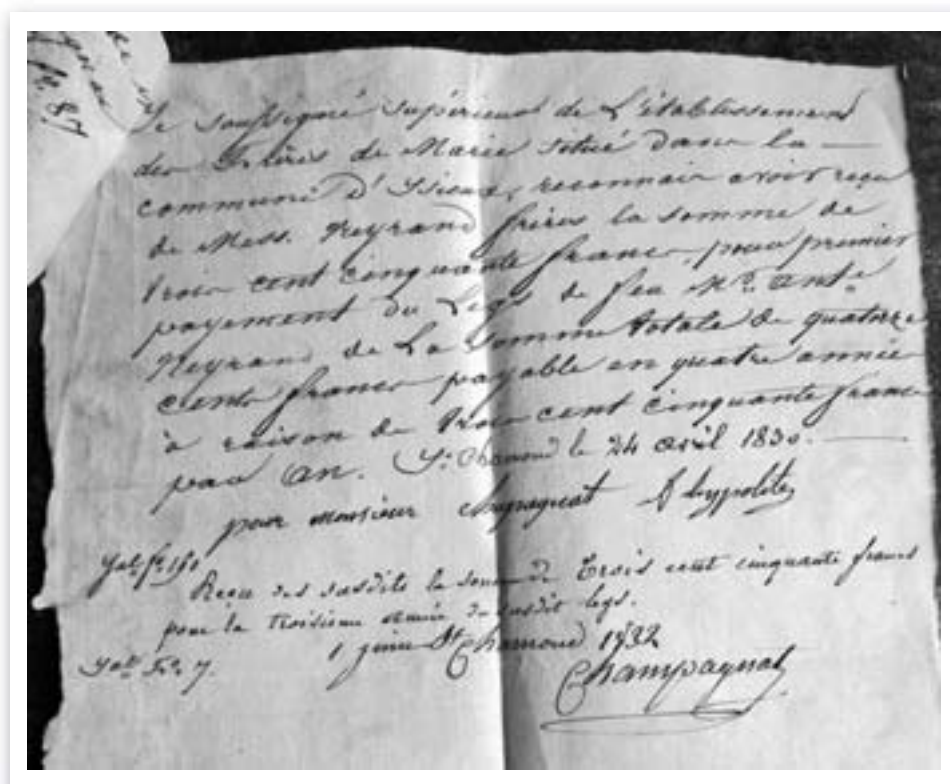 Je soussigné Supérieur de L'établissement
des Frères de Marie situé dans la
commune d'Isieux, reconnais avoir reçu
de Mess. Neyrand frères la somme de
trois cent cinquante francs, pour premier
payement du Legs de feu Mr. Ante
Neyrand de La Somme totale de quatorze
cents francs payable en quatre années
à raison de trois cent cinquante francs
par an. St Chamond le 24 avril 1830.
pour monsieur Champagnat f hypolite
Reçu des susdits la somme de Trois cent cinquante francs
pour la troisieme année du susdit legs.
1 juin St Chamond 1832
Champagnat